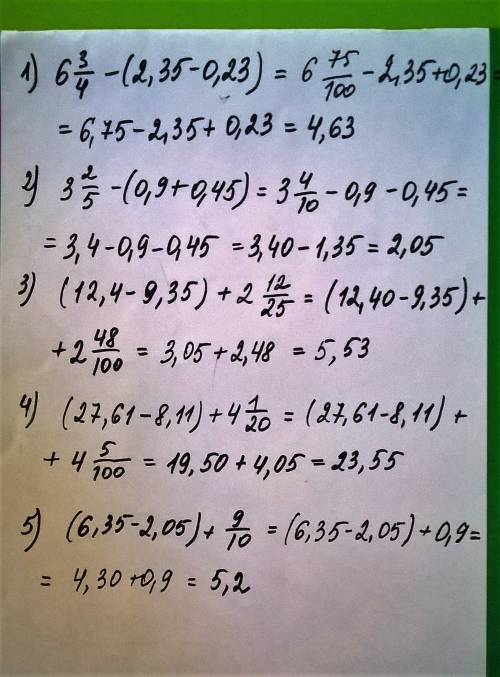 1) 6 3/4 - (2,35-0,23) = 6 75/100 - 2,35+0,23=
= 6,75-2,35+ 0,23 = 4,63
2) 3 2/5 - (0,9+0,45) = 3 4/10 - 0,9 - 0,45 =
= 3,4-0,9-0,45 = 3,40-1,35 = 2,05
3) (12,4-9,35) + 2 12/25 = (12,40-9,35) +
+ 2 48/100 = 3,05+2,48 = 5,53
4) (27,61-8,11) + 4 1/20 = (27,61-8,11) +
+ 4 5/100 = 19,50 + 4,05 = 23,55
5) (6,35-2,05) + 9/10 = (6,35-2,05) + 0,9=
= 4,30+0,9 = 5,2